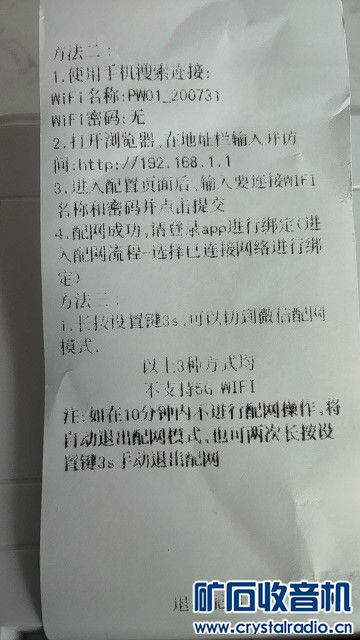 方法二:
1.使用手机搜索连接:
WiFi名称:PW01_200731
WiFi密码:无
2.打开浏览器,在地址栏输入并访
问:http://192.168.1.1
3.进入配置页面后,输入要连接WIFI
名称和密码并点击提交
4.配网成功,请登录app进行绑定(进
入配网流程-选择已连接网络进行绑
定)
方法三:
1.长按设置键3s,可以切到微信配网
模式.
以上3种方式均
不支持5G WIFI
注:如在10分钟内不进行配网操作,将
自动退出配网模式,也可两次长按设
置键3s手动退出配网
退
矿石收音机
www.crystalradio.cn